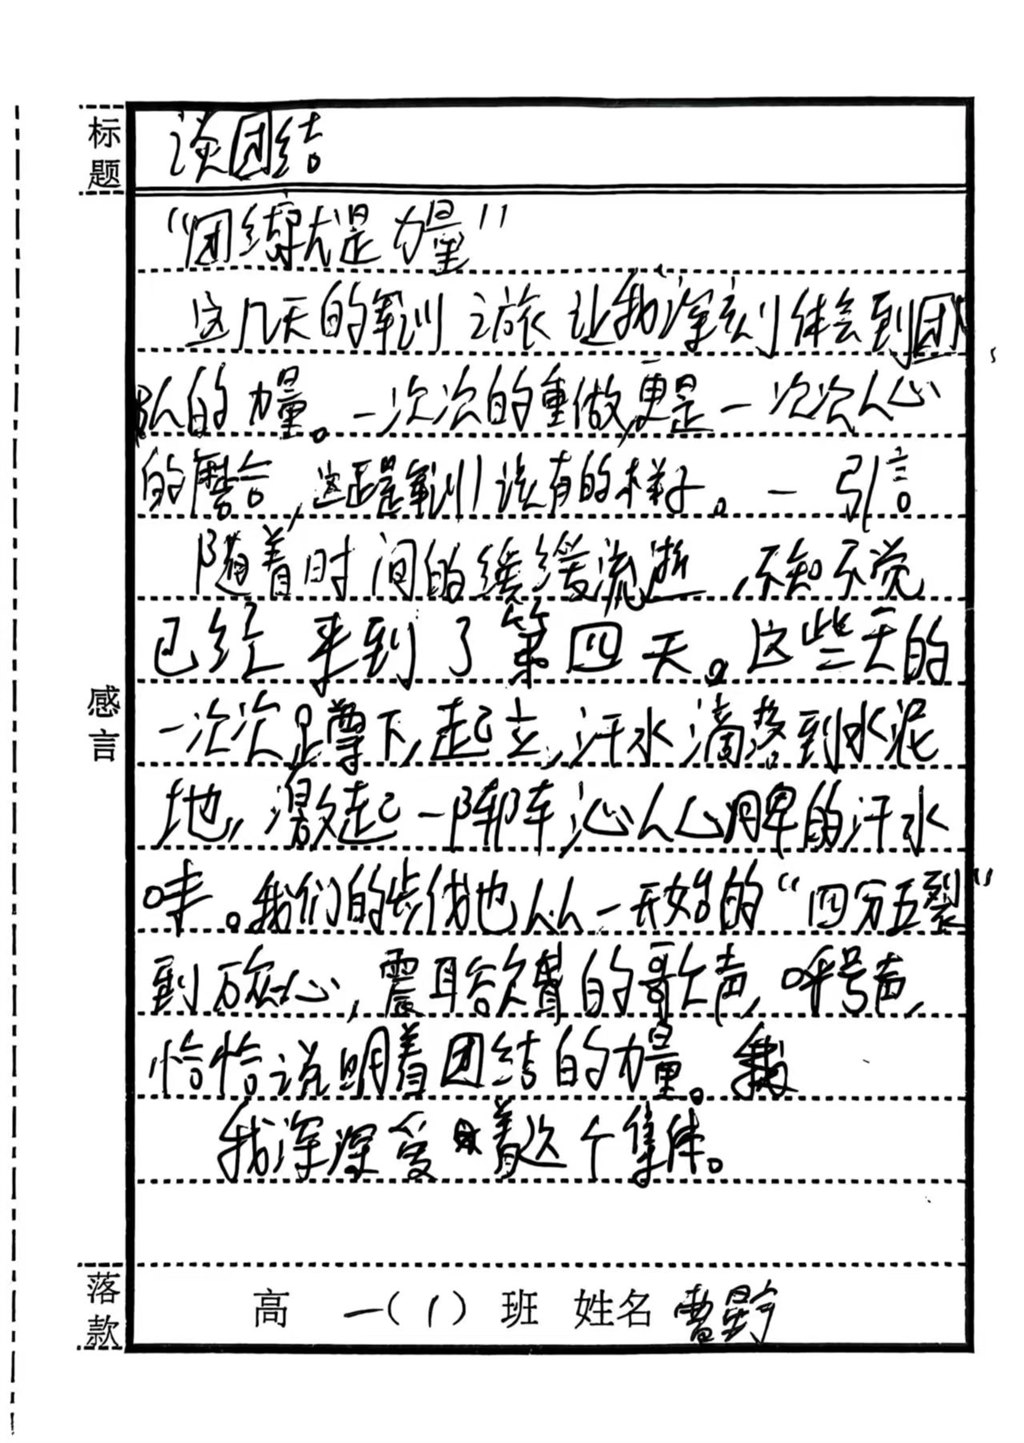 标题 谈团结
"团练就是力量"
这几天的军训之旅让我深刻体会到团
队的力量。一次次的重做,更是一次次人心
的磨合,这正是军训该有的样子。— 引言
随着时间的缓缓流逝,不知不觉
已经来到了第四天。这些天的
一次次蹲下,起立,汗水滴落到水泥
地,激起一阵阵沁人心脾的汗水
味。我们的步伐也从一开始的"四分五裂"
到万众一心,震耳欲聋的歌声,呼号声,
恰恰说明着团结的力量。
感言
我深深爱着这个集体。
落款 高一(1)班 姓名 曹